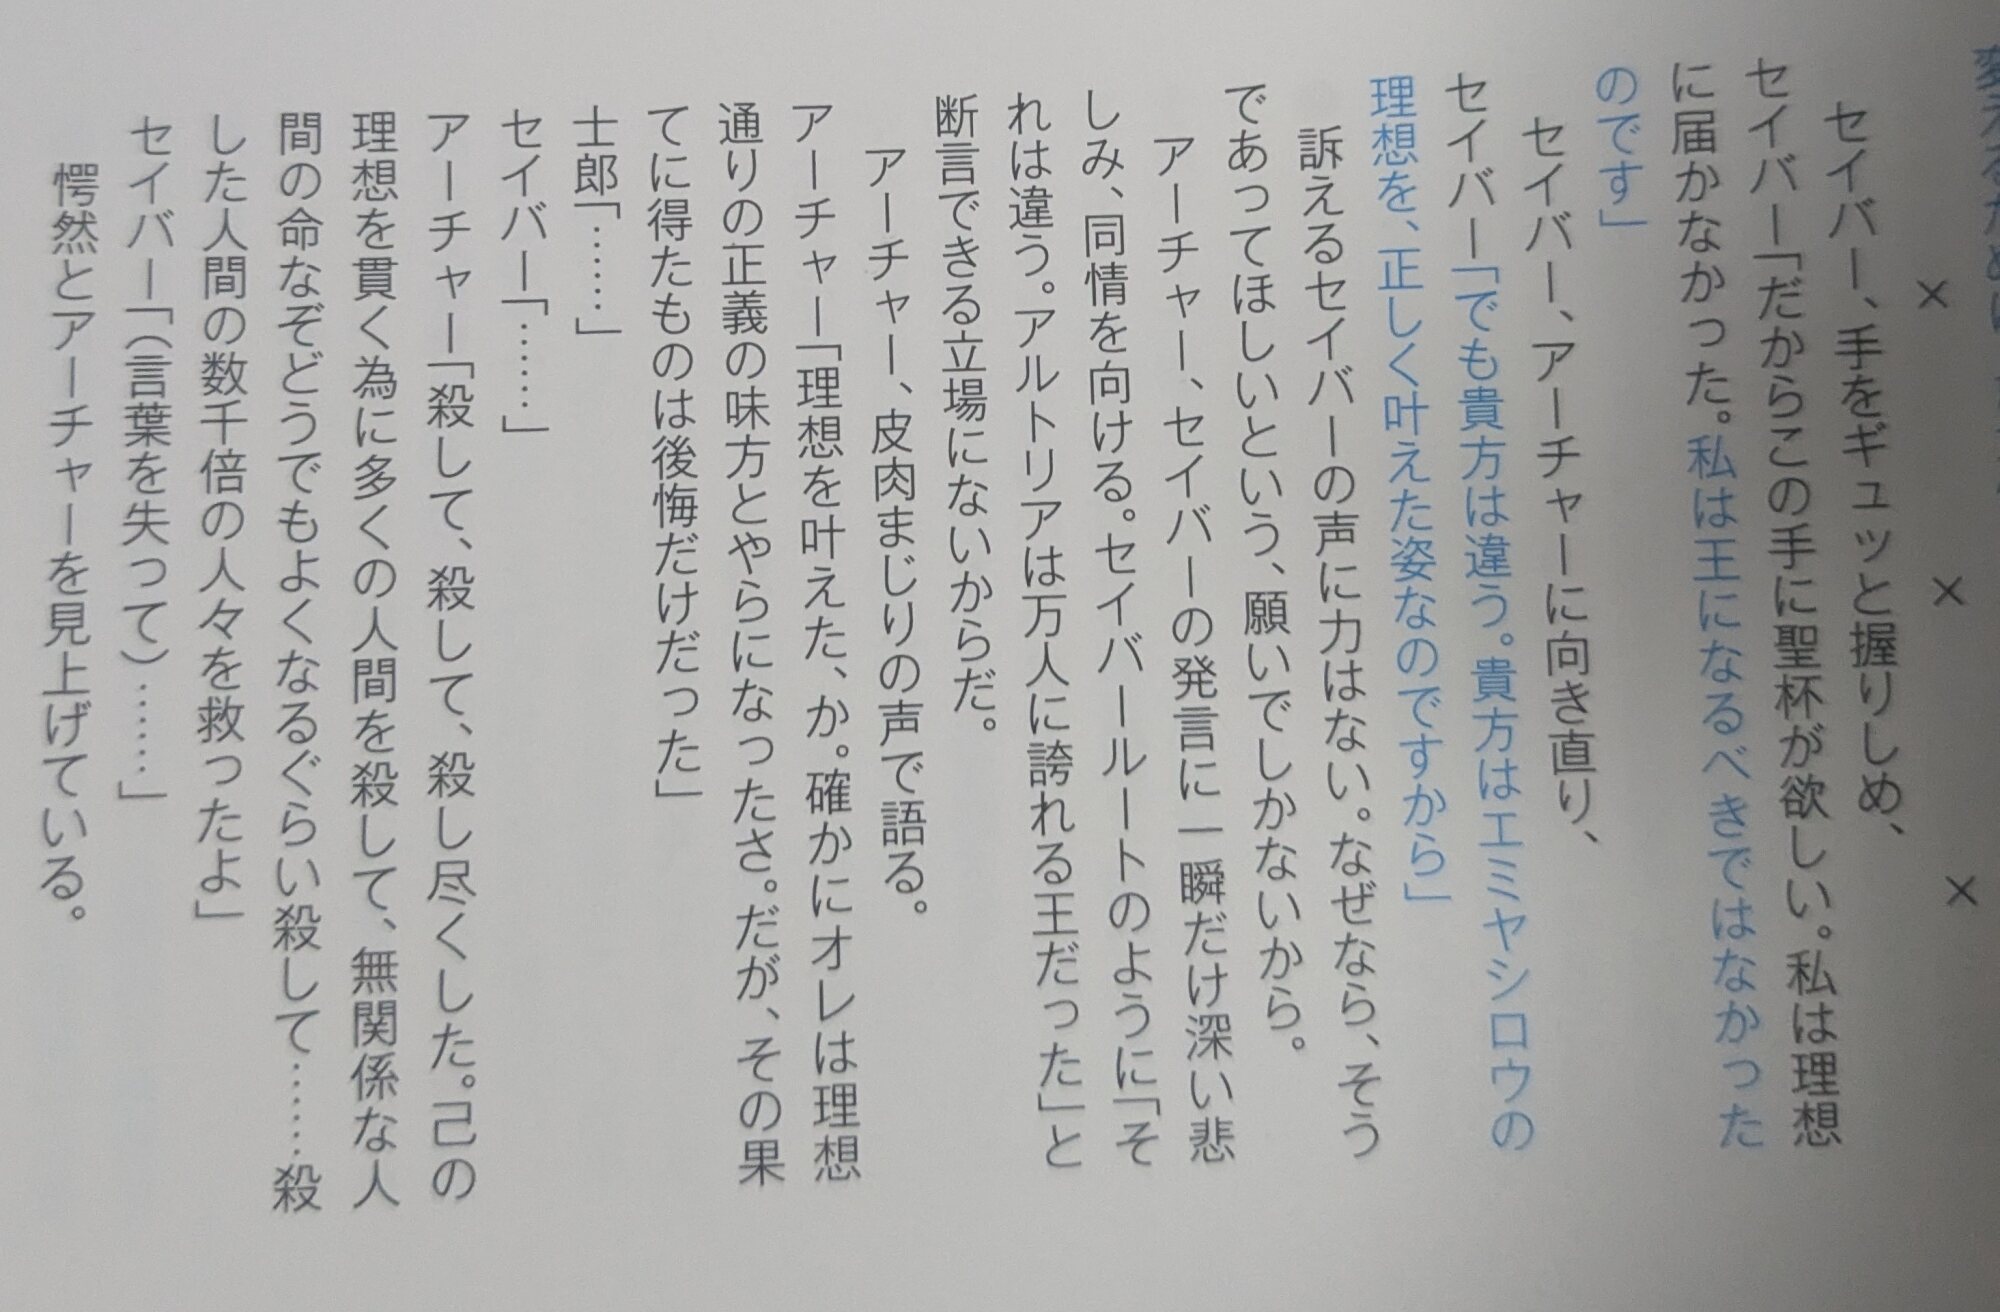 × × ×
セイバー、手をギュッと握りしめ、
セイバー「だからこの手に聖杯が欲しい。私は理想
に届かなかった。私は王になるべきではなかった
のです」
セイバー、アーチャーに向き直り、
セイバー「でも貴方は違う。貴方はエミヤシロウの
理想を、正しく叶えた姿なのですから」
訴えるセイバーの声に力はない。なぜなら、そう
であってほしいという、願いでしかないから。
アーチャー、セイバーの発言に一瞬だけ深い悲
しみ、同情を向ける。セイバールートのように「そ
れは違う。アルトリアは万人に誇れる王だった」と
断言できる立場にないからだ。
アーチャー、皮肉まじりの声で語る。
アーチャー「理想を叶えた、か。確かにオレは理想
通りの正義の味方とやらになったさ。だが、その果
てに得たものは後悔だけだった」
士郎「……」
セイバー「……」
アーチャー「殺して、殺して、殺し尽くした。己の
理想を貫く為に多くの人間を殺して、無関係な人
間の命なぞどうでもよくなるぐらい殺して……殺
した人間の数千倍の人々を救ったよ」
セイバー「（言葉を失って）……」
愕然とアーチャーを見上げている。